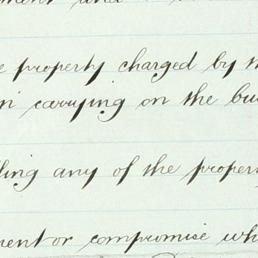 e property charged by th
n carrying on the bu
ling any of the propert
ment or compromise wh